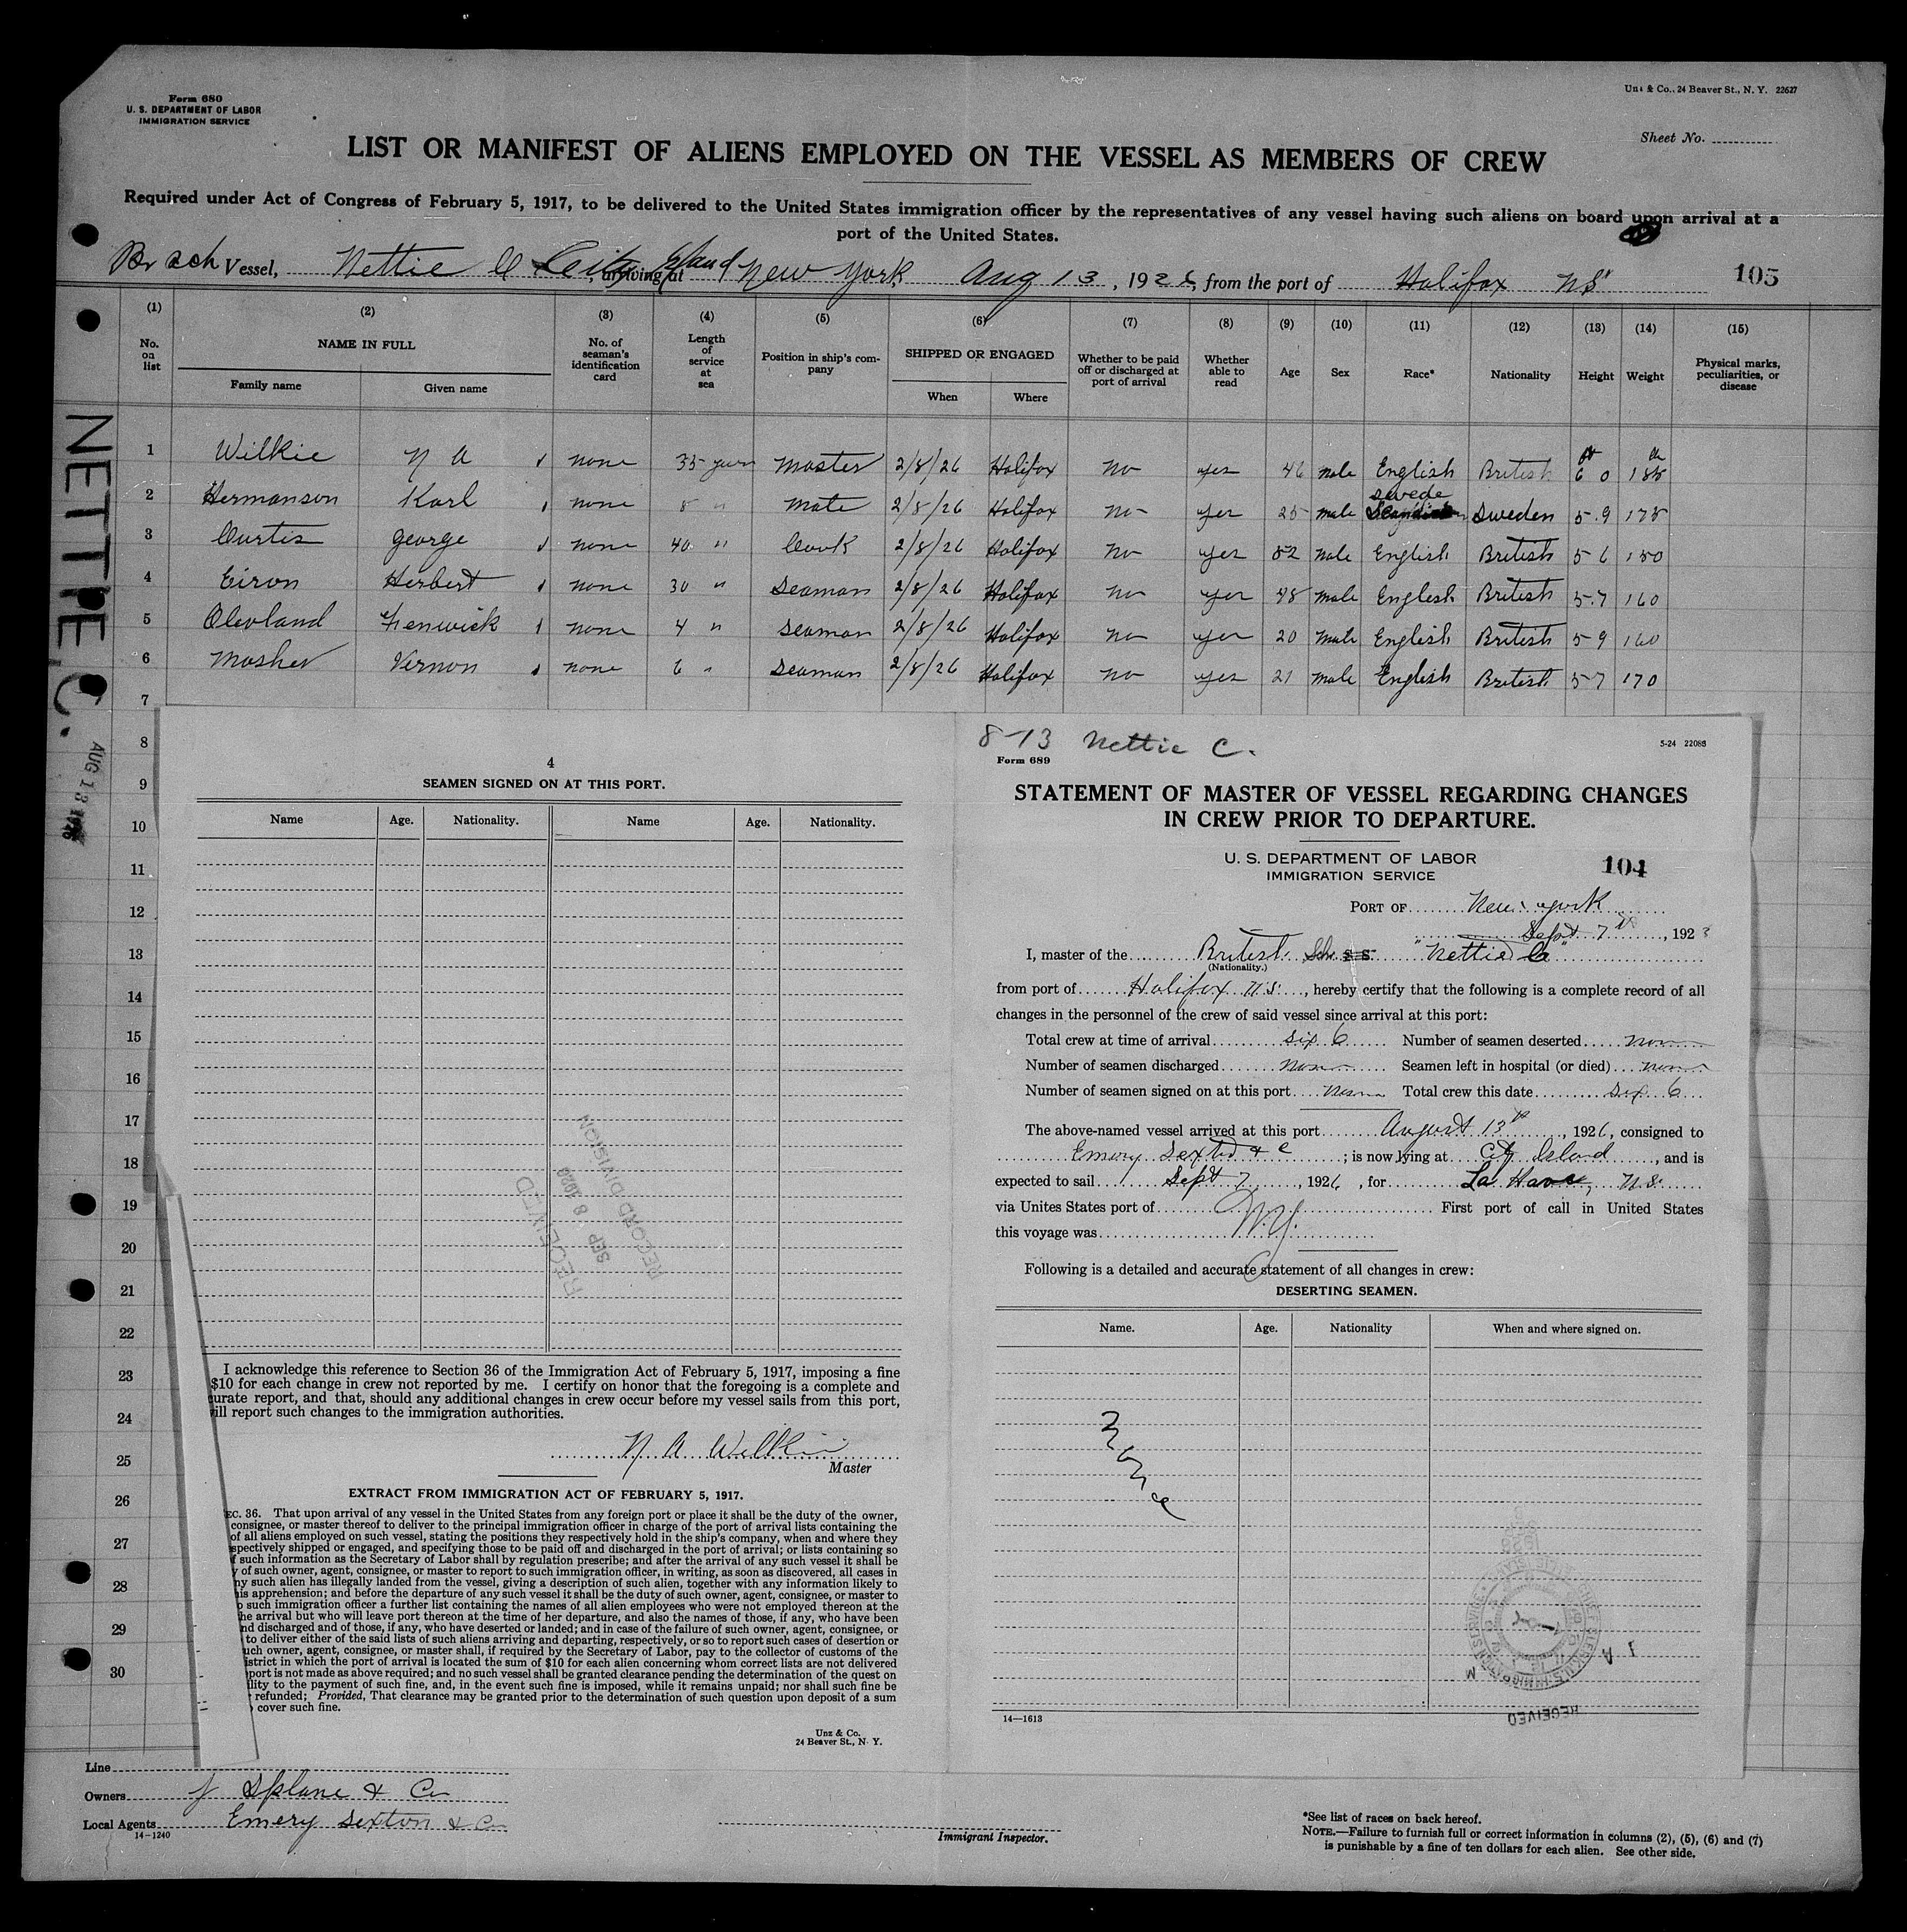 Form 680
U. S. DEPARTMENT OF LABOR
IMMIGRATION SERVICE
Unz & Co., 24 Beaver St., N. Y. 22627
Sheet No.
LIST OR MANIFEST OF ALIENS EMPLOYED ON THE VESSEL AS MEMBERS OF CREW
Required under Act of Congress of February 5, 1917, to be delivered to the United States immigration officer by the representatives of any vessel having such aliens on board upon arrival at a
port of the United States.
Br Sch Vessel, Nettie C City Island, arriving at New York Aug 13, 1926, from the port of Halifax NS 105
(1) (2) (3) (4) (5) (6) (7) (8) (9) (10) (11) (12) (13) (14) (15)
No. on list NAME IN FULL Family name Given name No. of seaman's identification card Length of service at sea Position in ship's company SHIPPED OR ENGAGED When Where Whether to be paid off or discharged at port of arrival Whether able to read Age Sex Race* Nationality Height Weight Physical marks, peculiarities, or disease
1 Wilkie N A none 35 years Master 2/8/26 Halifax No yes 46 male English British 6 0 185
2 Hermanson Karl none 8 " Mate 2/8/26 Halifax No yes 25 male Swede Sweden 5.9 175
3 Curtis George none 40 " Cook 2/8/26 Halifax No yes 52 male English British 5 6 150
4 Eiron Herbert none 30 " Seaman 2/8/26 Halifax No yes 48 male English British 5.7 160
5 Clevland Fenwick none 4 " Seaman 2/8/26 Halifax No yes 20 male English British 5 9 160
6 Mosher Vernon none 6 " Seaman 2/8/26 Halifax No yes 21 male English British 5 7 170
7
8
9
10
11
12
13
14
15
16
17
18
19
20
21
22
23
24
25
26
27
28
29
30
NETTIE. C.
AUG 13 1926
4
SEAMEN SIGNED ON AT THIS PORT.
Name Age. Nationality. Name Age. Nationality.
RECEIVED
SEP 8 1926
RECORD DIVISION
I acknowledge this reference to Section 36 of the Immigration Act of February 5, 1917, imposing a fine
$10 for each change in crew not reported by me. I certify on honor that the foregoing is a complete and
urate report, and that, should any additional changes in crew occur before my vessel sails from this port,
ill report such changes to the immigration authorities.
N A Wilkie
Master
EXTRACT FROM IMMIGRATION ACT OF FEBRUARY 5, 1917.
EC. 36. That upon arrival of any vessel in the United States from any foreign port or place it shall be the duty of the owner,
consignee, or master thereof to deliver to the principal immigration officer in charge of the port of arrival lists containing the
of all aliens employed on such vessel, stating the positions they respectively hold in the ship's company, when and where they
spectively shipped or engaged, and specifying those to be paid off and discharged in the port of arrival; or lists containing so
f such information as the Secretary of Labor shall by regulation prescribe; and after the arrival of any such vessel it shall be
y of such owner, agent, consignee, or master to report to such immigration officer, in writing, as soon as discovered, all cases in
ny such alien has illegally landed from the vessel, giving a description of such alien, together with any information likely to
is apprehension; and before the departure of any such vessel it shall be the duty of such owner, agent, consignee, or master to
o such immigration officer a further list containing the names of all alien employees who were not employed thereon at the
he arrival but who will leave port thereon at the time of her departure, and also the names of those, if any, who have been
nd discharged and of those, if any, who have deserted or landed; and in case of the failure of such owner, agent, consignee, or
to deliver either of the said lists of such aliens arriving and departing, respectively, or so to report such cases of desertion or
uch owner, agent, consignee, or master shall, if required by the Secretary of Labor, pay to the collector of customs of the
istrict in which the port of arrival is located the sum of $10 for each alien concerning whom correct lists are not delivered
port is not made as above required; and no such vessel shall be granted clearance pending the determination of the quest on
lity to the payment of such fine, and, in the event such fine is imposed, while it remains unpaid; nor shall such fine be
refunded; Provided, That clearance may be granted prior to the determination of such question upon deposit of a sum
cover such fine.
Unz & Co.
24 Beaver St., N. Y.
8-13 Nettie C.
Form 689
5-24 22088
STATEMENT OF MASTER OF VESSEL REGARDING CHANGES
IN CREW PRIOR TO DEPARTURE.
U. S. DEPARTMENT OF LABOR
IMMIGRATION SERVICE
104
PORT OF New York
Sept 7th, 192
I, master of the British Sch S. S. "Nettie C"
(Nationality.)
from port of Halifax N.S., hereby certify that the following is a complete record of all
changes in the personnel of the crew of said vessel since arrival at this port:
Total crew at time of arrival six 6 Number of seamen deserted none
Number of seamen discharged none Seamen left in hospital (or died) none
Number of seamen signed on at this port none Total crew this date six 6
The above-named vessel arrived at this port August 13th, 1926, consigned to
Emery Sexton & C; is now lying at City Island, and is
expected to sail Sept 7, 1926, for La Have, N.S.
via Unites States port of First port of call in United States
this voyage was N.Y.
Following is a detailed and accurate statement of all changes in crew:
DESERTING SEAMEN.
Name. Age. Nationality When and where signed on.
None
RECEIVED
14—1613
Line
Owners J Splane & Co
Local Agents Emery Sexton & Co
14-1240
Immigrant Inspector.
*See list of races on back hereof.
NOTE.—Failure to furnish full or correct information in columns (2), (5), (6) and (7)
is punishable by a fine of ten dollars for each alien. See other side.